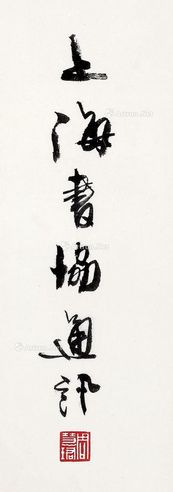 上海書協通訊